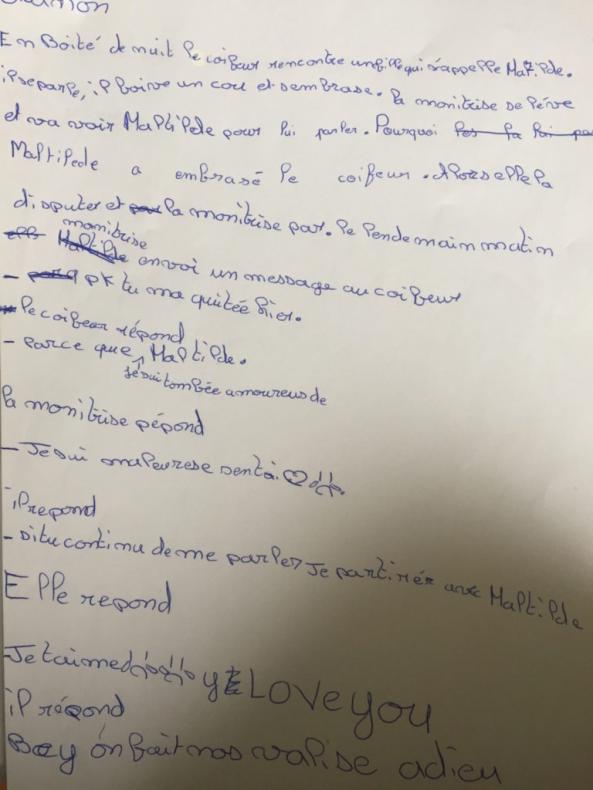 En Boité de nuit le coifeur rencontre unfille qui s'appelle Maltilde.
ilseparle, il boive un cou et sembrase. la monitrise se léve
et va voir Maltilde pour lui parler. Pourquoi
Maltilede a embrasé le coifeur. Alors elle la
disputer et la monitrise par. le lendemain matin
monitrise
envoi un message au coifeur
- pk tu ma quitée hier.
le coifeur répond
- parce que Maltilde.
je suitombée amoureus de
la monitrise pépond
- Je sui maleurese sentoi
il repond
- situ continu de me parler Je partirér avec Maltilde
Elle repond
Je taime y Love you
il répond
Bay on fait nos valise adieu